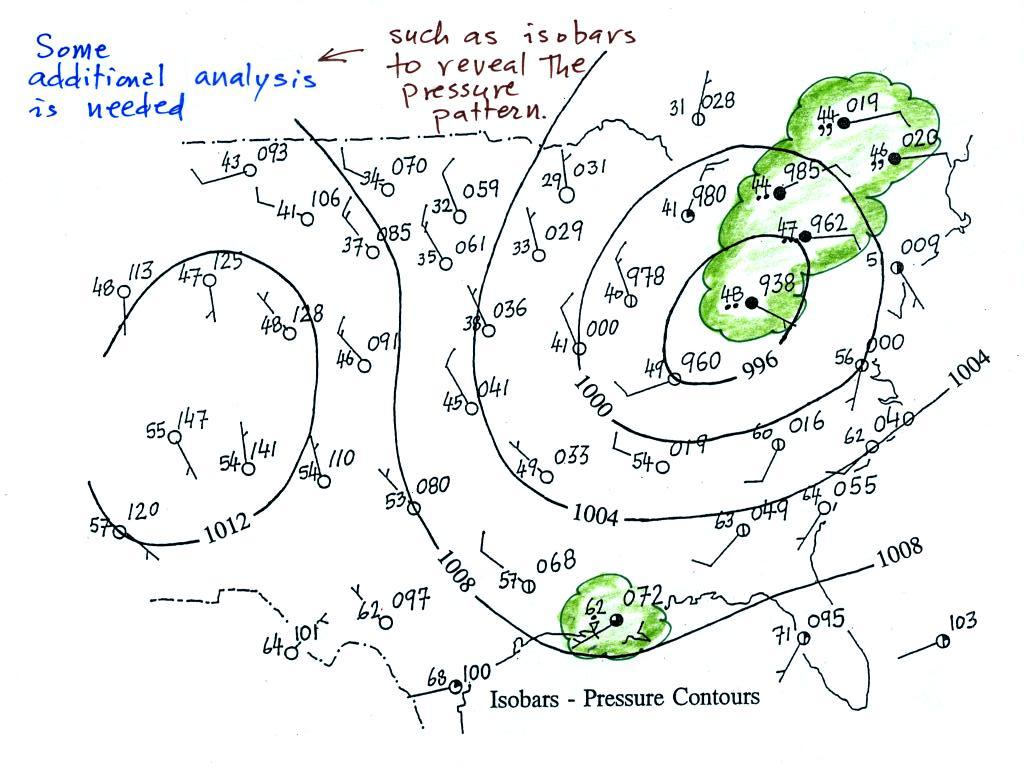 Some
additional analysis
is needed
such as isobars
to reveal the
pressure
pattern.
31 028
44 019
46 020
43 093
34 070
32 059
29 031
41 980
44 985
47 962
41 106
37 085
35 061
33 029
009
5
48 113
47 125
48 128
40 978
48 938
38 036
46 091
41 000
49 960
996
56 000
1004
1000
45 041
55 147
54 141
54 110
49 033
54 019
60 016
62 040
53 080
64 055
57 120
1012
1004
63 049
1008
57 068
1008
62 097
62 072
64 101
71 095
103
68 100
Isobars - Pressure Contours